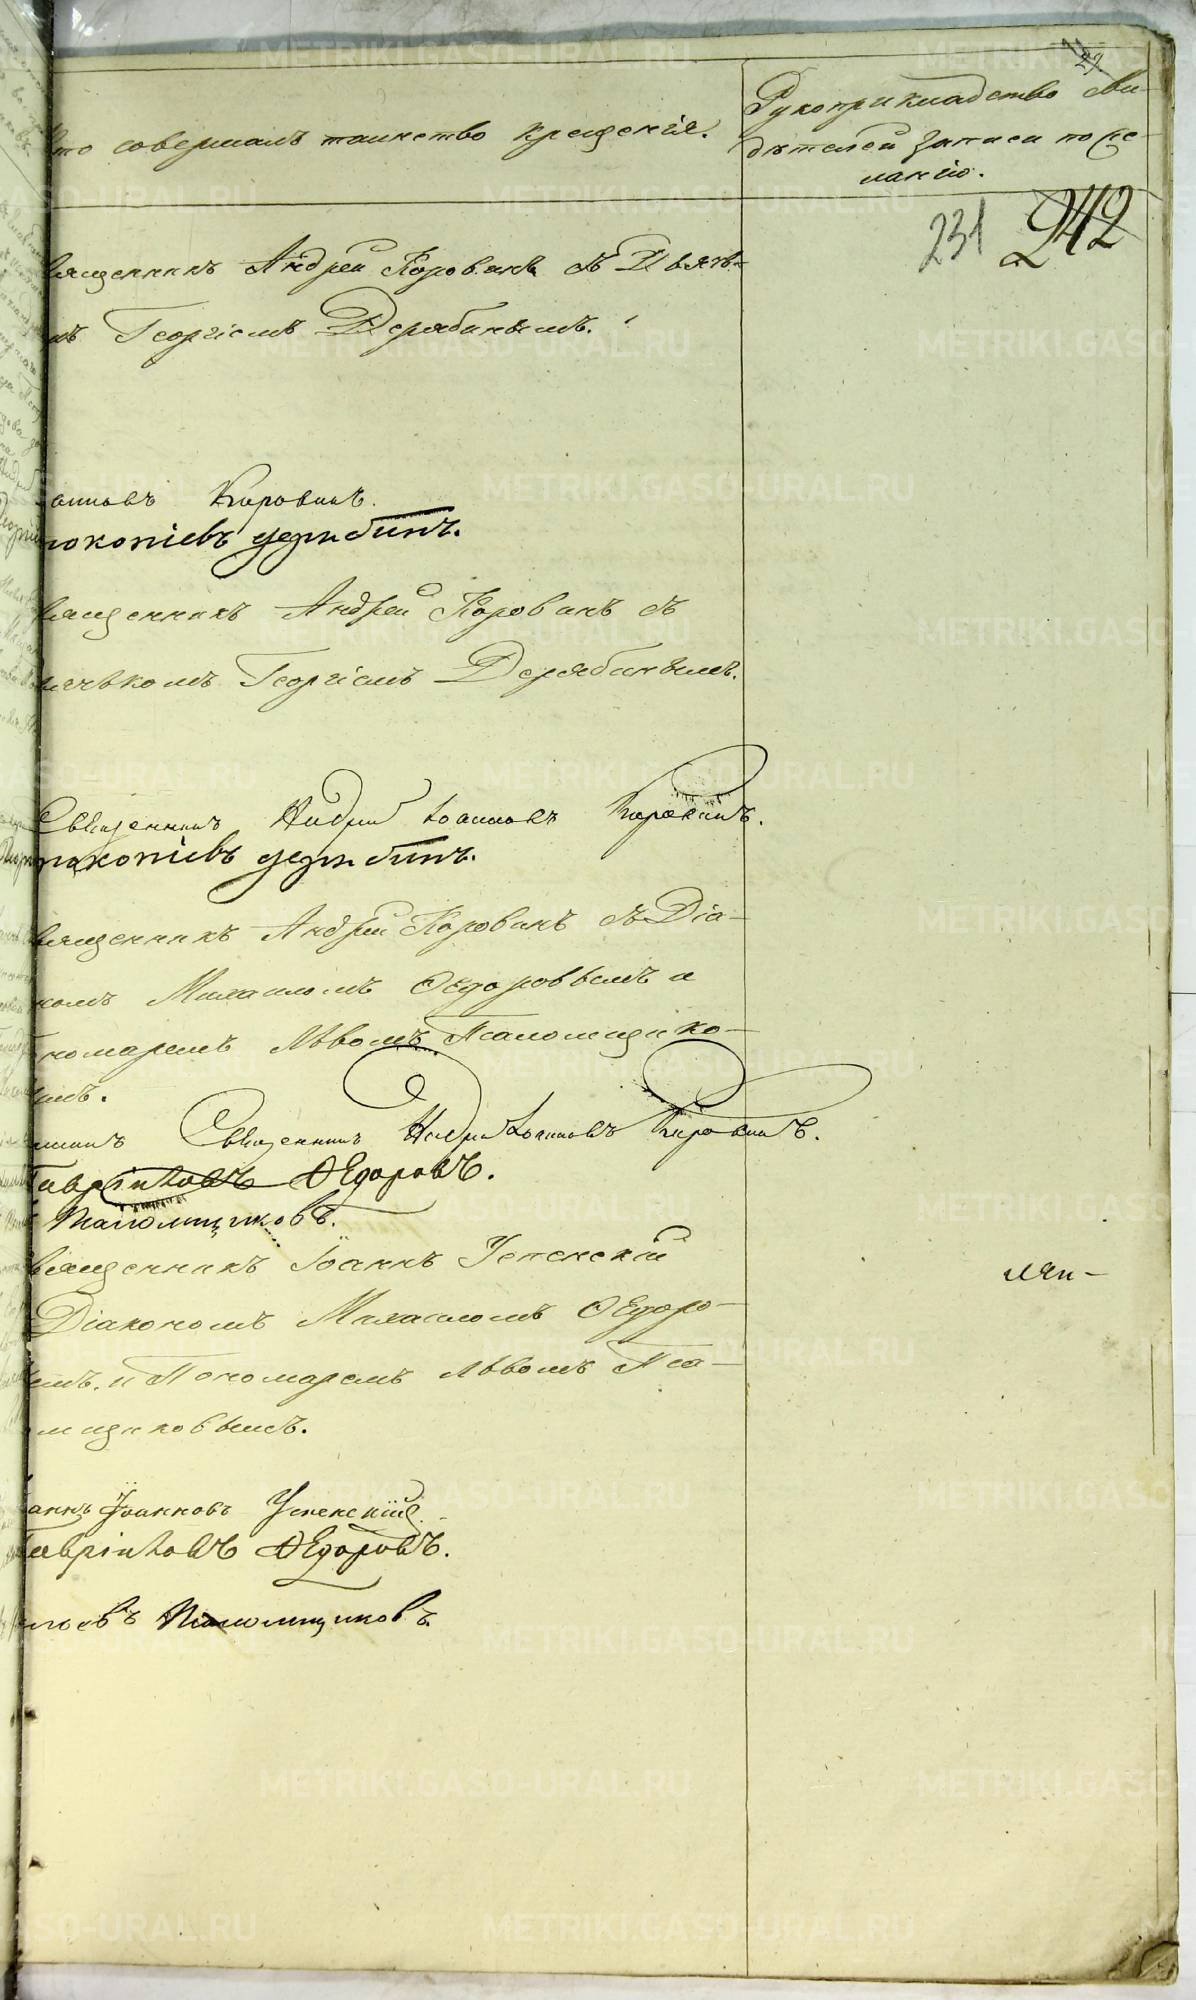 29.
Кто совершалъ таинство крещенія.
Рукоприкладство сви-
дѣтелей записи по же-
ланію.
231 242
священникъ Андрей Коровинъ съ Дьячь-
къ Георгіемъ Дерябинымъ.
оанновъ Коровинъ.
рокопіевъ Дерябинъ.
вященникъ Андрей Коровинъ съ
ьячькомъ Георгіемъ Дерябинымъ.
Священникъ Андрей Іоанновъ Коровинъ.
рокопіевъ Дерябинъ.
вященникъ Андрей Коровинъ съ Діа-
комъ Михаиломъ Ѳедоровымъ и
ономаремъ Львомъ Паломщико-
ымъ.
Священникъ Андрей Іоанновъ Коровинъ.
Гавриловъ Ѳедоровъ.
Паломщиковъ.
вященникъ Іоаннъ Успенскій
Діакономъ Михаиломъ Ѳедоро-
ымъ. и Пономаремъ Львомъ Па-
мщиковымъ.
аннъ Іоанновъ Успенскій.
Гавриловъ Ѳедоровъ.
Паломщиковъ.
METRIKI.GASO-URAL.RU